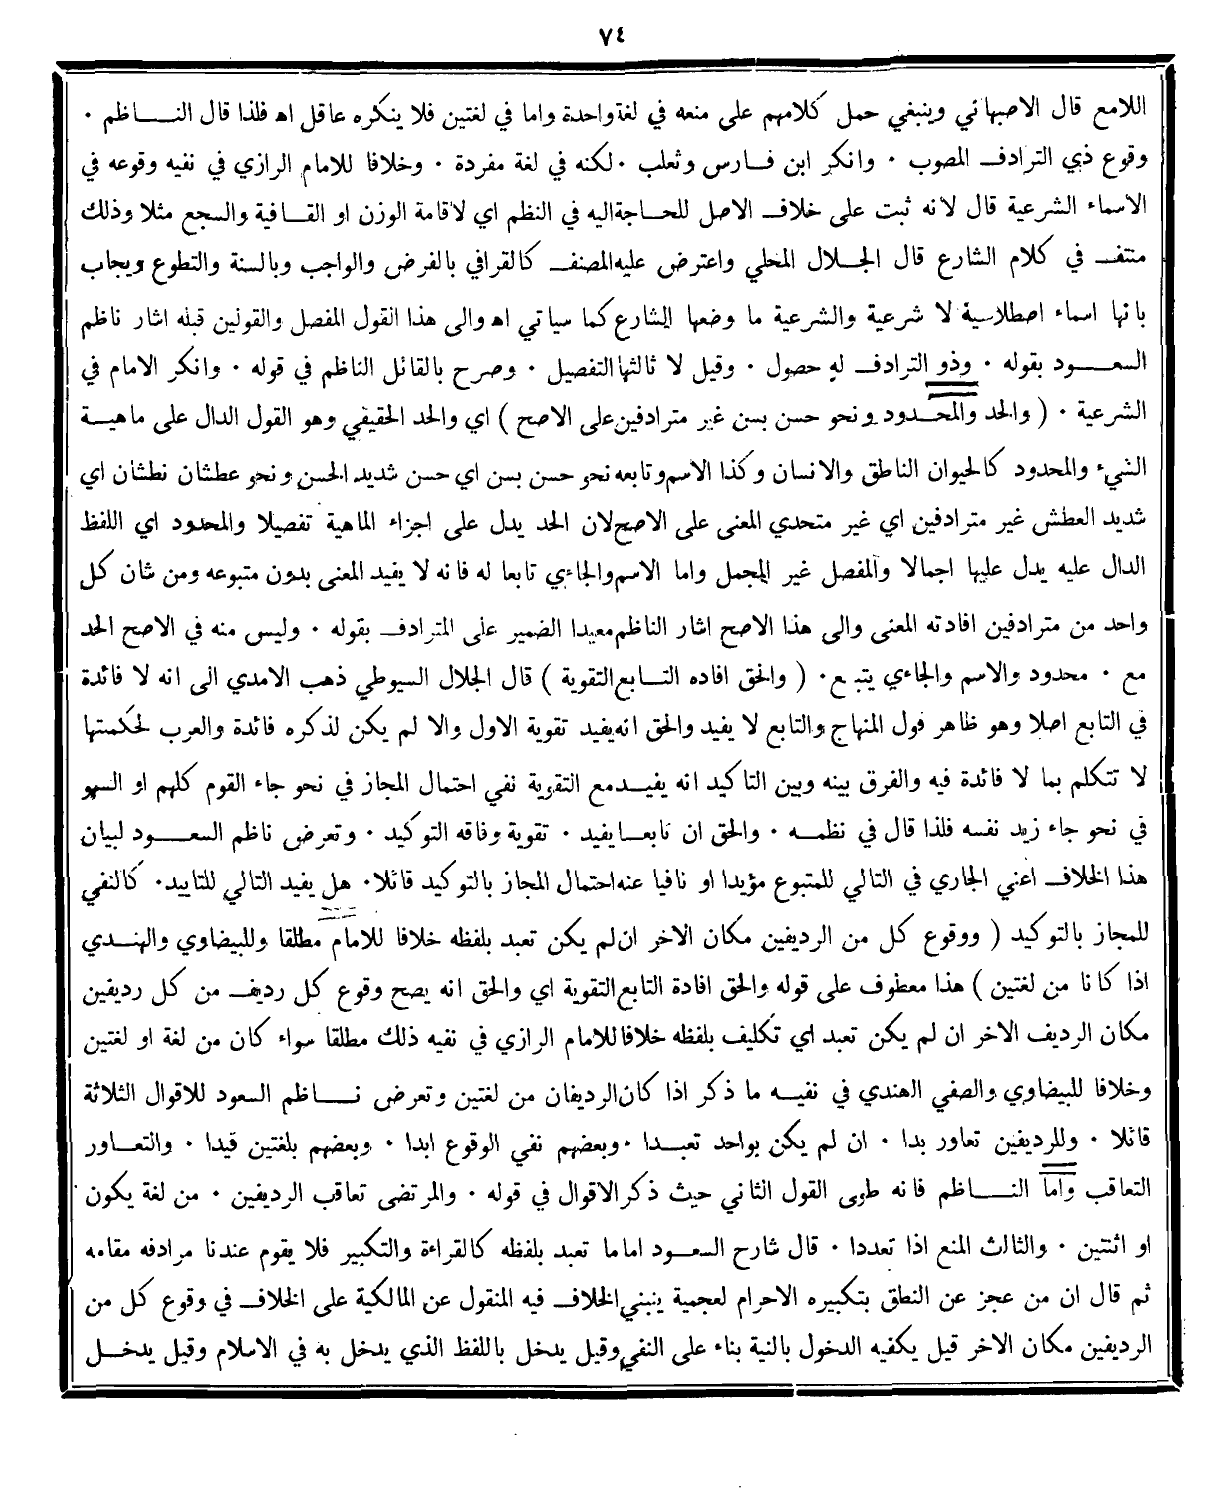 ٧٤
اللامع قال الاصبهاني وينبغي حمل كلامهم على منعه في لغة واحدة واما في لغتين فلا ينكره عاقل اه فلذا قال الناظم ·
وقوع ذي الترادف المصوب · وانكر ابن فارس وثعلب · لكنه في لغة مفردة · وخلافا للامام الرازي في نفيه وقوعه في
الاسماء الشرعية قال لانه ثبت على خلاف الاصل للحاجة اليه في النظم اي لاقامة الوزن او القافية والسجع مثلا وذلك
منتف في كلام الشارع قال الجلال المحلي واعترض عليه المصنف كالقرافي بالفرض والواجب وبالسنة والتطوع ويجاب
بانها اسماء اصطلاسية لا شرعية والشرعية ما وضعها الشارع كما سياتي اه والى هذا القول المفصل والقولين قبله اشار ناظم
السعود بقوله · وذو الترادف له حصول · وقيل لا ثالثها التفصيل · وصرح بالقائل الناظم في قوله · وانكر الامام في
الشرعية · ( والحد والمحدود ونحو حسن بسن غير مترادفين على الاصح ) اي والحد الحقيقي وهو القول الدال على ماهية
الشيء والمحدود كالحيوان الناطق والانسان وكذا الاسم وتابعه نحو حسن بسن اي حسن شديد الحسن ونحو عطشان نطشان اي
شديد العطش غير مترادفين اي غير متحدي المعنى على الاصح لان الحد يدل على اجزاء الماهية تفصيلا والمحدود اي اللفظ
الدال عليه يدل عليها اجمالا والمفصل غير المجمل واما الاسم والجاءي تابعا له فانه لا يفيد المعنى بدون متبوعه ومن شان كل
واحد من مترادفين افادته المعنى والى هذا الاصح اشار الناظم معيدا الضمير على المترادف بقوله · وليس منه في الاصح الحد
مع · محدود والاسم والجاءي يتبع · ( والحق افاده التابع التقوية ) قال الجلال السيوطي ذهب الامدي الى انه لا فائدة
في التابع اصلا وهو ظاهر قول المنهاج والتابع لا يفيد والحق انه يفيد تقوية الاول والا لم يكن لذكره فائدة والعرب لحكمتها
لا تتكلم بما لا فائدة فيه والفرق بينه وبين التاكيد انه يفيد مع التقوية نفي احتمال المجاز في نحو جاء القوم كلهم او السهو
في نحو جاء زيد نفسه فلذا قال في نظمه · والحق ان تابعا يفيد · تقوية وفاقه التوكيد · وتعرض ناظم السعود لبيان
هذا الخلاف اعني الجاري في التالي للمتبوع مؤيدا او نافيا عنه احتمال المجاز بالتوكيد قائلا · هل يفيد التالي للتاييد · كالنفي
للمجاز بالتوكيد ( ووقوع كل من الرديفين مكان الاخر ان لم يكن تعبد بلفظه خلافا للامام مطلقا وللبيضاوي والهندي
اذا كانا من لغتين ) هذا معطوف على قوله والحق افادة التابع التقوية اي والحق انه يصح وقوع كل رديف من كل رديفين
مكان الرديف الاخر ان لم يكن تعبد اي تكليف بلفظه خلافا للامام الرازي في نفيه ذلك مطلقا سواء كان من لغة او لغتين
وخلافا للبيضاوي والصفي الهندي في نفيه ما ذكر اذا كان الرديفان من لغتين وتعرض ناظم السعود للاقوال الثلاثة
قائلا · وللرديفين تعاور بدا · ان لم يكن بواحد تعبدا · وبعضهم نفي الوقوع ابدا · وبعضهم بلغتين قيدا · والتعاور
التعاقب واما الناظم فانه طوى القول الثاني حيث ذكر الاقوال في قوله · والمرتضى تعاقب الرديفين · من لغة يكون
او اثنتين · والثالث المنع اذا تعددا · قال شارح السعود اماما تعبد بلفظه كالقراءة والتكبير فلا يقوم عندنا مرادفه مقامه
ثم قال ان من عجز عن النطق بتكبيره الاحرام لعجمية ينبني الخلاف فيه المنقول عن المالكية على الخلاف في وقوع كل من
الرديفين مكان الاخر قيل يكفيه الدخول بالنية بناء على النفي وقيل يدخل باللفظ الذي يدخل به في الاسلام وقيل يدخل